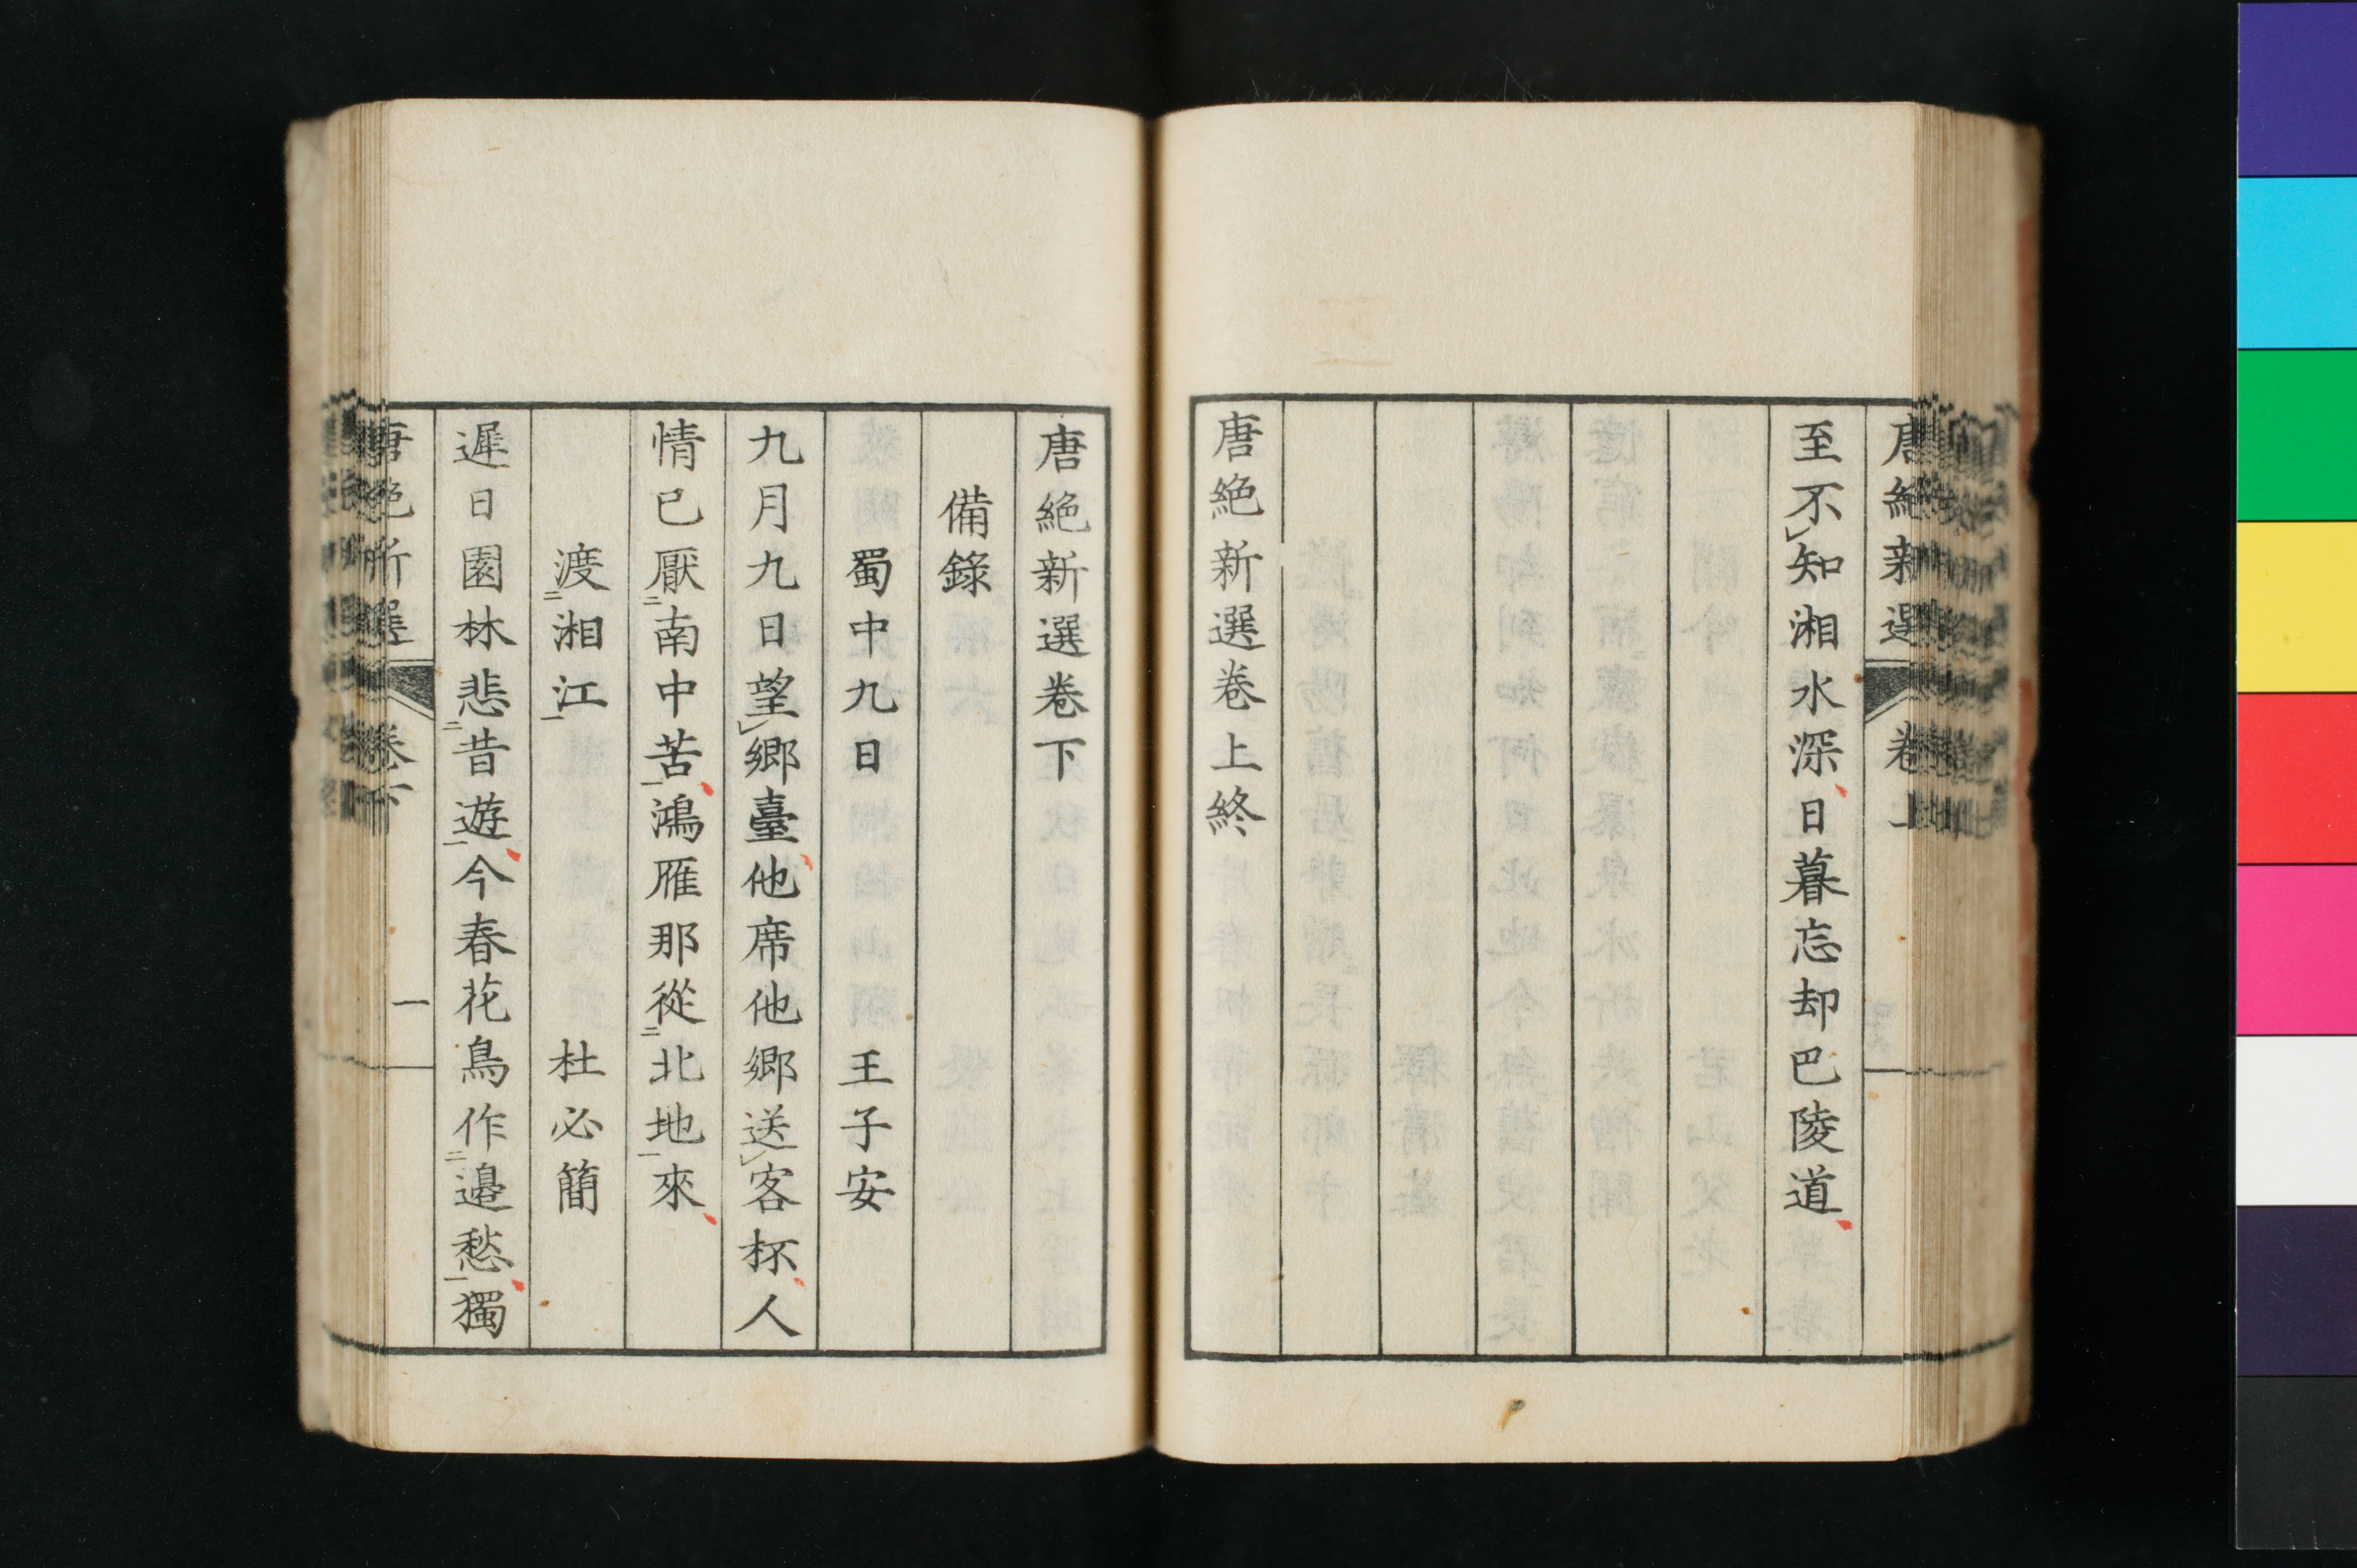 唐絶新選 卷上
至不知湘水深日暮忘却巴陵道
唐絶新選卷上終
唐絶新選卷下
備錄
蜀中九日 王子安
九月九日望鄉臺他席他鄉送客杯人
情已厭南中苦鴻雁那從北地來
渡湘江 杜必簡
遲日園林悲昔遊今春花鳥作邊愁獨
唐絶新選 卷下 一